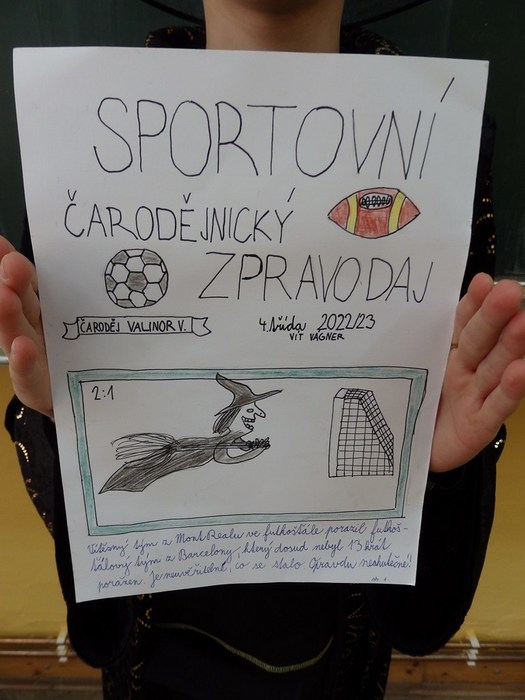 SPORTOVNÍ
ČARODĚJNICKÝ
ZPRAVODAJ
ČARODĚJ VALINOR V.
4. třída 2022/23
VÍT VÁGNER
2:1
Vítězný tým z MontRealu ve futkošťále porazil futkoš-
ťálový tým z Barcelony, který dosud nebyl 13 krát
poražen. Je neuvěřitelné, co se stalo. Opravdu neskutečné!